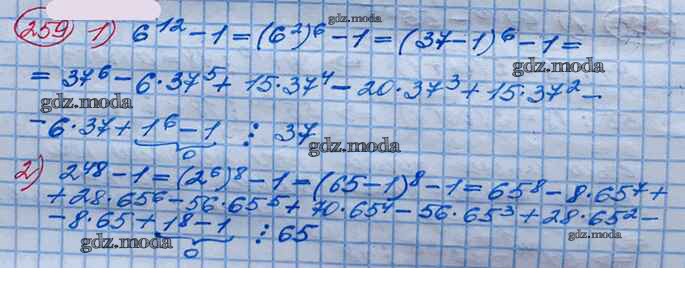 gdz.moda
259 1) 6^12 - 1 = (6^2)^6 - 1 = (37-1)^6 - 1 =
gdz.moda
= 37^6 - 6·37^5 + 15·37^4 - 20·37^3 + 15·37^2 -
gdz.moda gdz.moda
- 6·37 + 1^6 - 1 ⋮ 37
0 gdz.moda
2) 2^48 - 1 = (2^6)^8 - 1 = (65-1)^8 - 1 = 65^8 - 8·65^7 +
+ 28·65^6 - 56·65^5 + 70·65^4 - 56·65^3 + 28·65^2 -
- 8·65 + 1^8 - 1 ⋮ 65
gdz.moda 0 gdz.moda